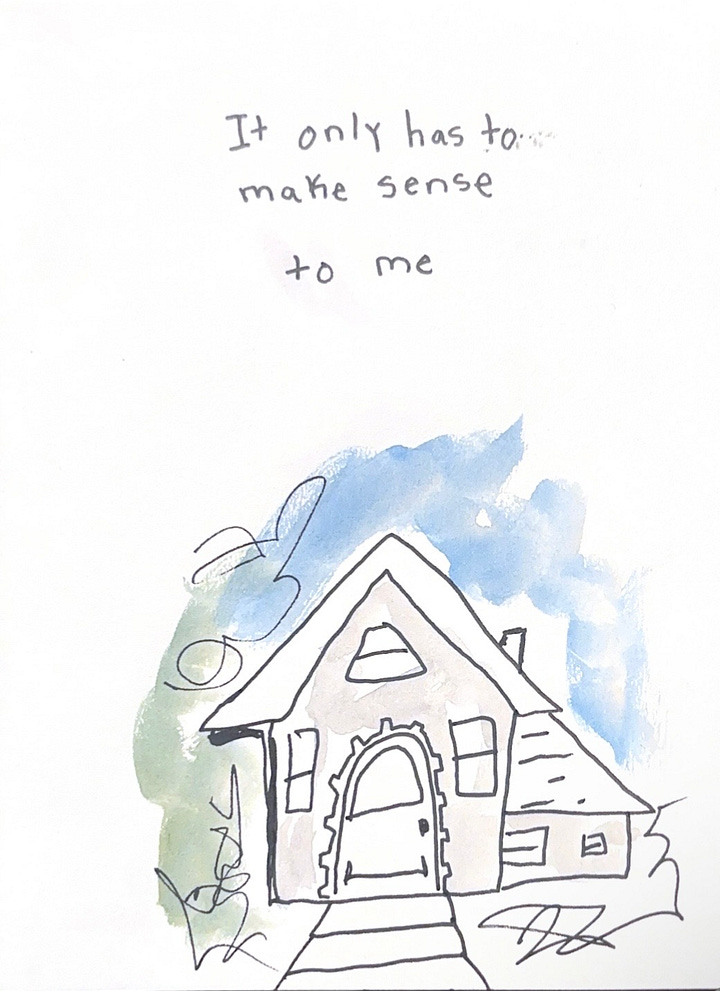 It only has to
make sense
to me